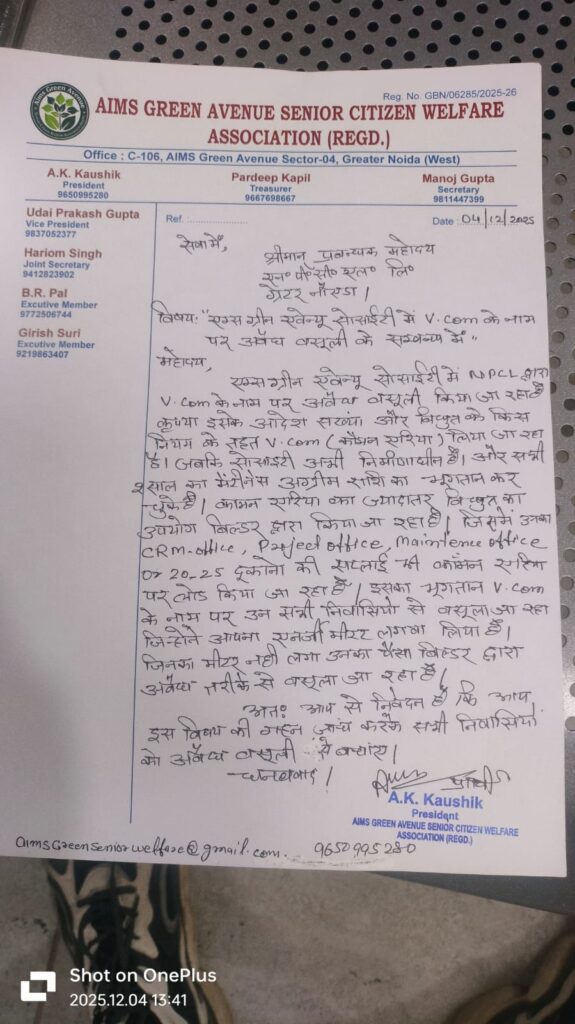 Aims Green Avenue
Reg. No. GBN/06285/2025-26
AIMS GREEN AVENUE SENIOR CITIZEN WELFARE
ASSOCIATION (REGD.)
Office : C-106, AIMS Green Avenue Sector-04, Greater Noida (West)
A.K. Kaushik
President
9650995280
Pardeep Kapil
Treasurer
9667698667
Manoj Gupta
Secretary
9811447399
Udai Prakash Gupta
Vice President
9837052377
Hariom Singh
Joint Secretary
9412823902
B.R. Pal
Excutive Member
9772506744
Girish Suri
Excutive Member
9219863407
Ref.:
Date : 04/12/2025
सेवा में,
श्रीमान प्रबन्धक महोदय
एन० पी० सी० एल० लि०
ग्रेटर नौएडा।
विषय:- "एम्स ग्रीन एवेन्यू सोसाईटी में V.com के नाम
पर अवैध वसूली के सम्बन्ध में"
महोदय,
एम्स ग्रीन एवेन्यू सोसाईटी में NPCL द्वारा
V.com के नाम पर अवैध वसूली किया जा रहा है
कृप्या इसके आदेश संख्या और विधुत के किस
नियम के तहत V.com (कौमन एरिया) लिया जा रहा
है। जबकि सोसाईटी अभी निर्माणाधीन है। और सभी
2 साल का मेंटीनेस अग्रीम राशि का भूगतान कर
चुके है। कामन एरिया का ज्यादातर विधुत का
उपयोग बिल्डर द्वारा किया जा रहा है। जिसमें उनका
CRM-office, Project office, Maintence office
or 20-25 दूकानो की सप्लाई भी कॉमन एरिया
पर लोड किया जा रहा है। इसका भूगतान V.com
के नाम पर उन सभी निवासियो से वसूला जा रहा
जिन्होने आपना एनर्जी मीटर लगवा लिया है।
जिनका मीटर नही लगा उनका पैसा बिल्डर द्वारा
अवैध तरीके से वसूला जा रहा है।
अतः आप से निवेदन है कि आप
इस विषय की गहन जांच करके सभी निवासियो
को अवैध वसूली से बचाए।
धन्यवाद।
प्रार्थी
A.K. Kaushik
President
AIMS GREEN AVENUE SENIOR CITIZEN WELFARE
ASSOCIATION (REGD.)
AimsGreenseniorwelfare@gmail.com. 9650995280
Shot on OnePlus
2025.12.04 13:41